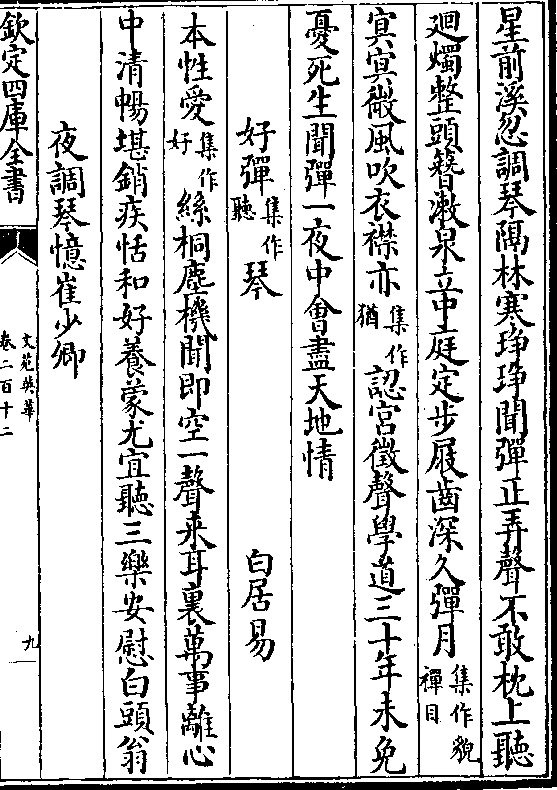 星前溪忽調琴隔林寒琤琤聞彈正弄聲不敢枕上聽
廻燭整頭簪漱泉立中庭定步屐齒深久彈月集作貌禪目
寘寘微風吹衣襟亦集作猶認宮徵聲學道三十年未免
憂死生聞彈一夜中會盡天地情
好彈集作聽琴 白居易
本性愛集作好絲桐塵機聞即空一聲來耳裏萬事離心
中清暢堪銷疾恬和好養蒙尤宜聽三樂安慰白頭翁
夜調琴憶崔少卿
欽定四庫全書
文苑英華
卷二百十二
九